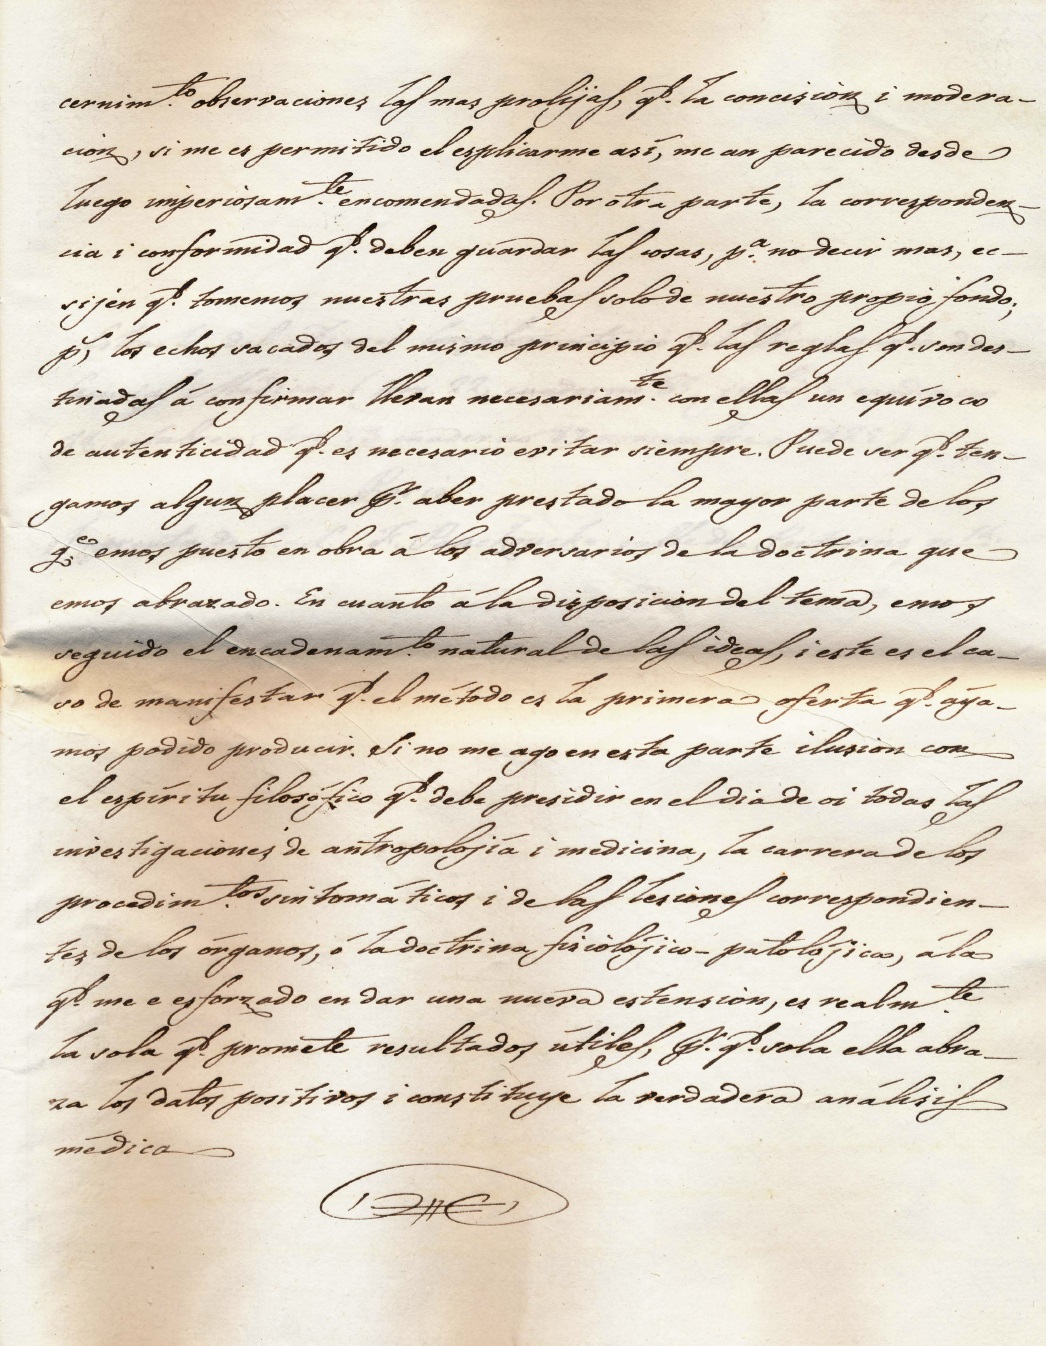 cernim.to observaciones las mas prolijas, q.e la concision i modera-
cion, si me es permitido el esplicarme así, me an parecido desde
luego imperiosam.te encomendadas. Por otra parte, la corresponden-
cia i conformidad q.e deben guardar las cosas, p.a no decir mas, ec-
sijen q.e tomemos nuestras pruebas solo de nuestro propio fondo;
p.s los echos sacados del mismo principio q.e las reglas q.e son des-
tinadas á confirmar llevan necesariam.te con ellas un equívoco
de autenticidad q.e es necesario evitar siempre. Puede ser q.e ten-
gamos algun placer p.r aber prestado la mayor parte de los
q.e emos puesto en obra á los adversarios de la doctrina que
emos abrazado. En cuanto á la disposicion del tema, emos
seguido el encadenam.to natural de las ideas, i este es el ca-
so de manifestar q.e el método es la primera oferta q.e aya-
mos podido producir. Si no me ago en esta parte ilusion con
el espíritu filosófico q.e debe presidir en el dia de oi todas las
investigaciones de antropolojía i medicina, la carrera de los
procedim.tos sintomáticos i de las lesiones correspondien-
tes de los órganos, ó la doctrina fisiolójico-patolójica, á la
q.e me e esforzado en dar una nueva estension, es realm.te
la sola q.e promete resultados útiles, p.r q.e sola ella abra-
za los datos positivos i constituye la verdadera análisis
médica